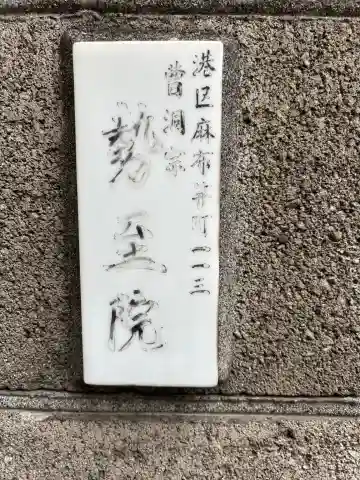 港区麻布笄町一一三
曹洞宗
勢至院